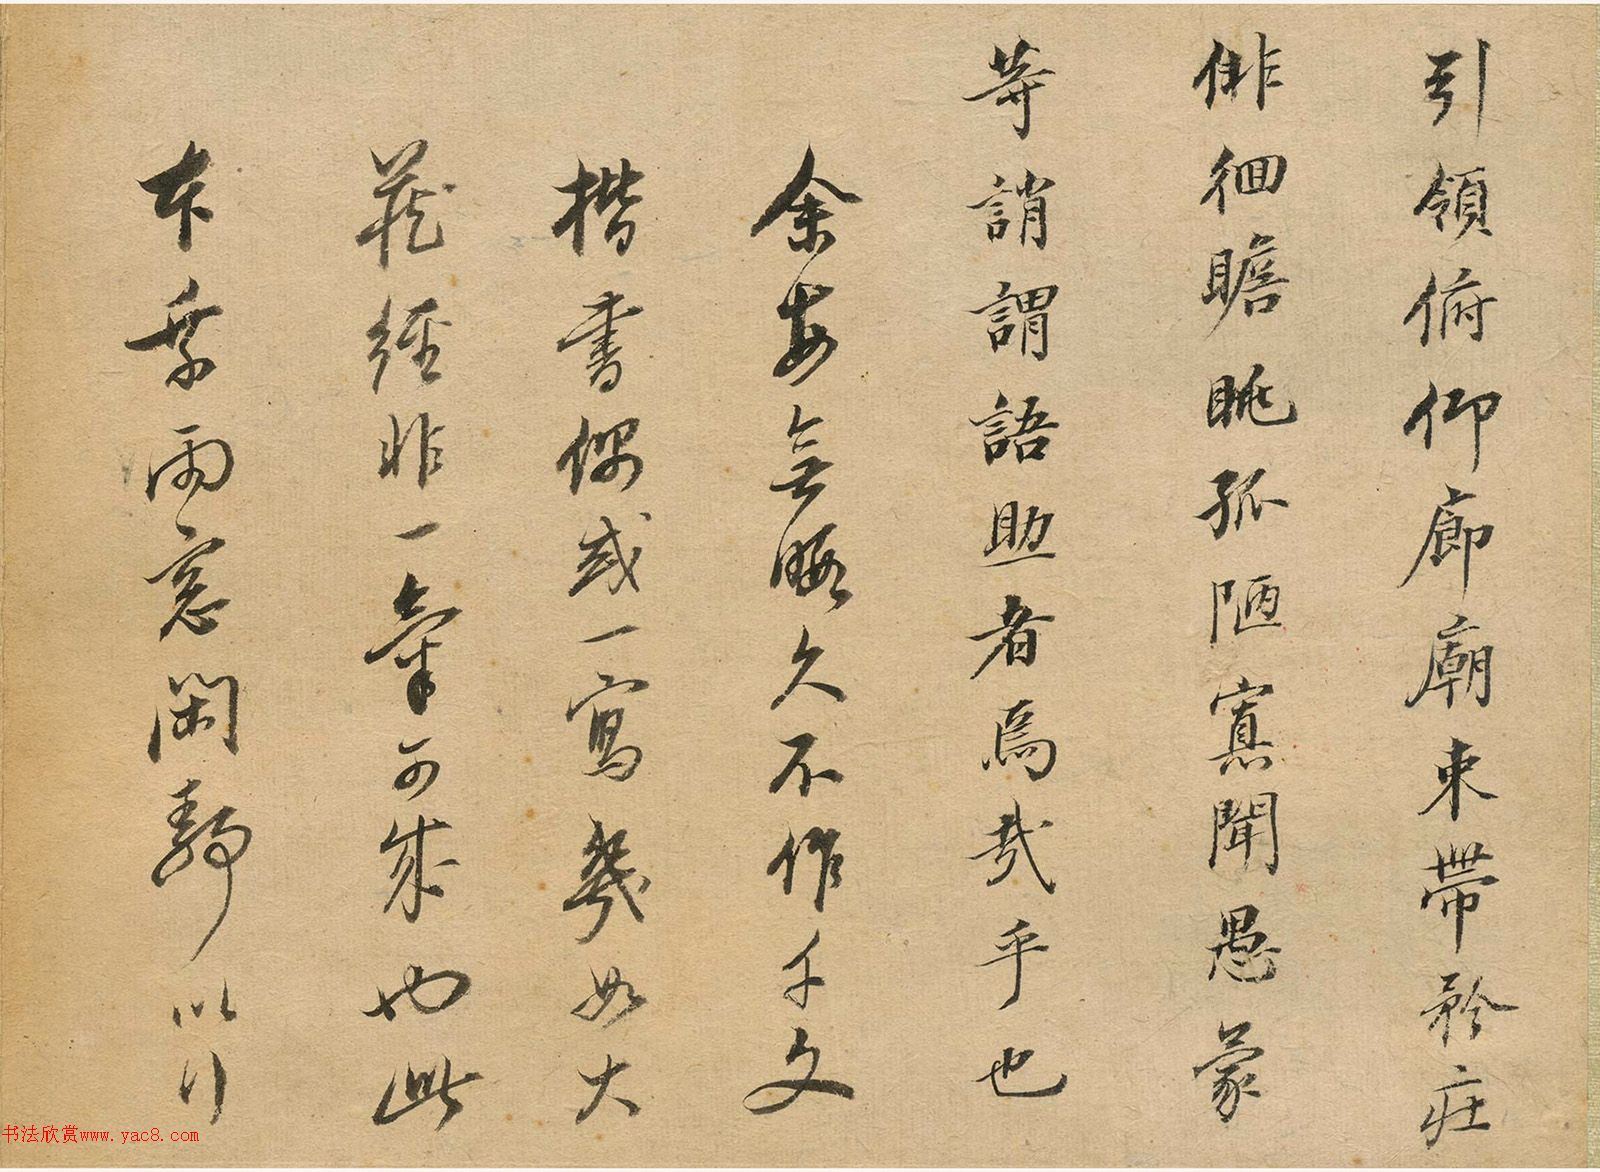 引領俯仰廊廟束帶矜莊
俳徊瞻眺孤陋寡聞愚蒙
等誚謂語助者焉哉乎也
余每無暇久不作千文
楷書偶或一寫幾如大
藏經非一氣可成也此
本乘雨窓閑靜以行
书法欣赏www.yac8.com